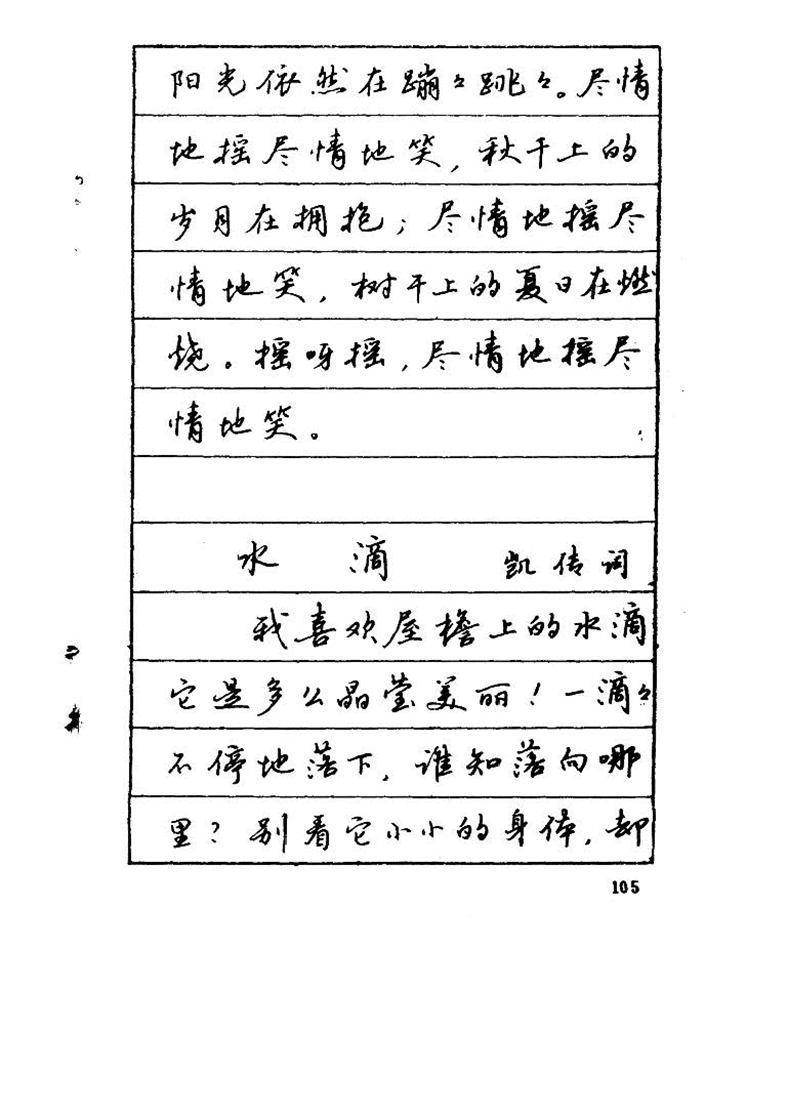 阳光依然在蹦々跳々。尽情
地摇尽情地笑,秋千上的
岁月在拥抱;尽情地摇尽
情地笑,树干上的夏日在燃
烧。摇呀摇,尽情地摇尽
情地笑。
水 滴 凯传词
我喜欢屋檐上的水滴
它是多么晶莹美丽!一滴々
不停地落下,谁知落向哪
里?别看它小小的身体,却
105